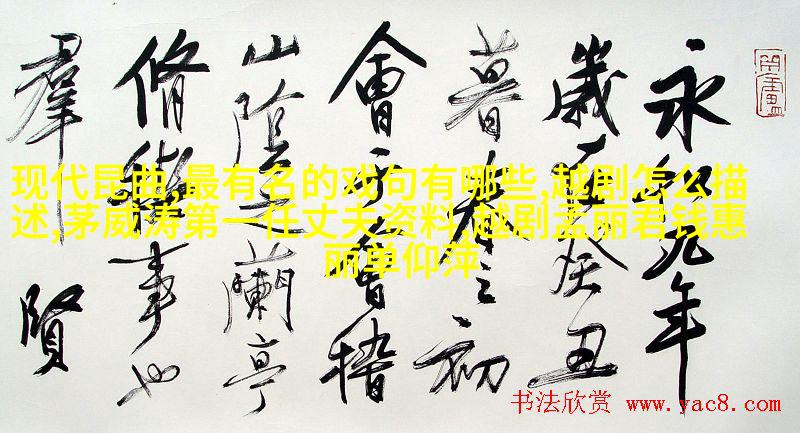 永和九年
歲在癸丑
暮春之初
會于會稽
山陰之蘭亭
脩禊事也
羣賢
现代昆曲,最有名的戏句有哪些,越剧怎么描
述,茅威涛第一任丈夫资料,越剧孟丽君钱惠
丽单仰萍
书法欣赏 www.yac8.com